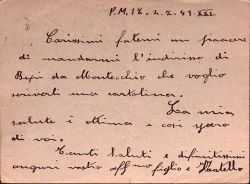 P.M. 12. 2.2.43 XXI
Carissimi fatemi un piacere
di mandarmi l'indirisso di
Bepi da Montecchio che voglio
scriverti una cartolina.
La mia
salute è ottima e così spero
di voi.
Tanti saluti e
auguri vostro aff.mo figlio e fratello